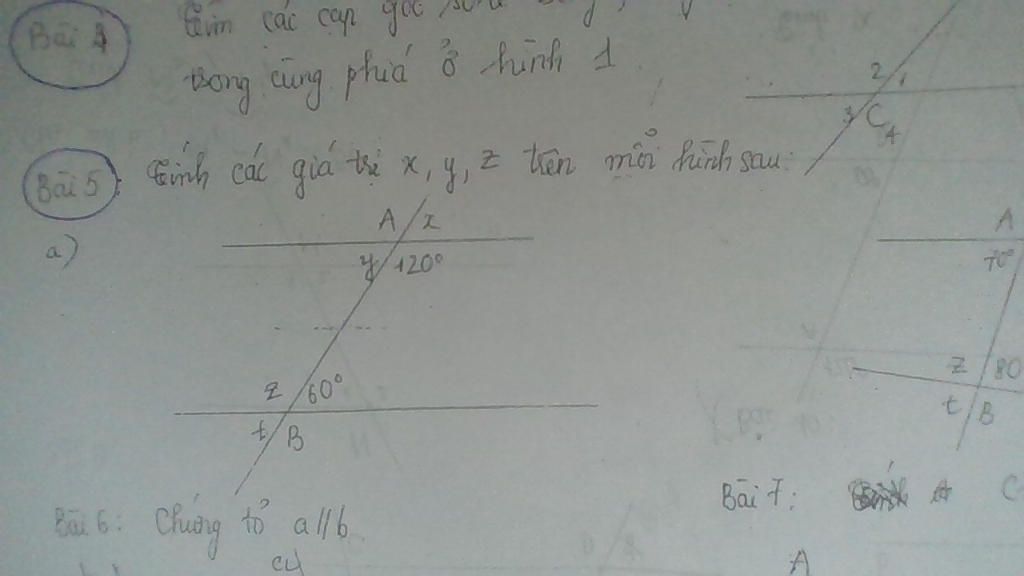 Bài 4
Tìm các cặp góc
trong cùng phía ở hình 1
2 1
3 C 4
Bài 5: Tính các giá trị x, y, z trên mỗi hình sau:
a)
A x
y 120°
z 60°
t B
A
70°
z 80
t B
Bài 6: Chứng tỏ a//b
Bài 7:
C
A